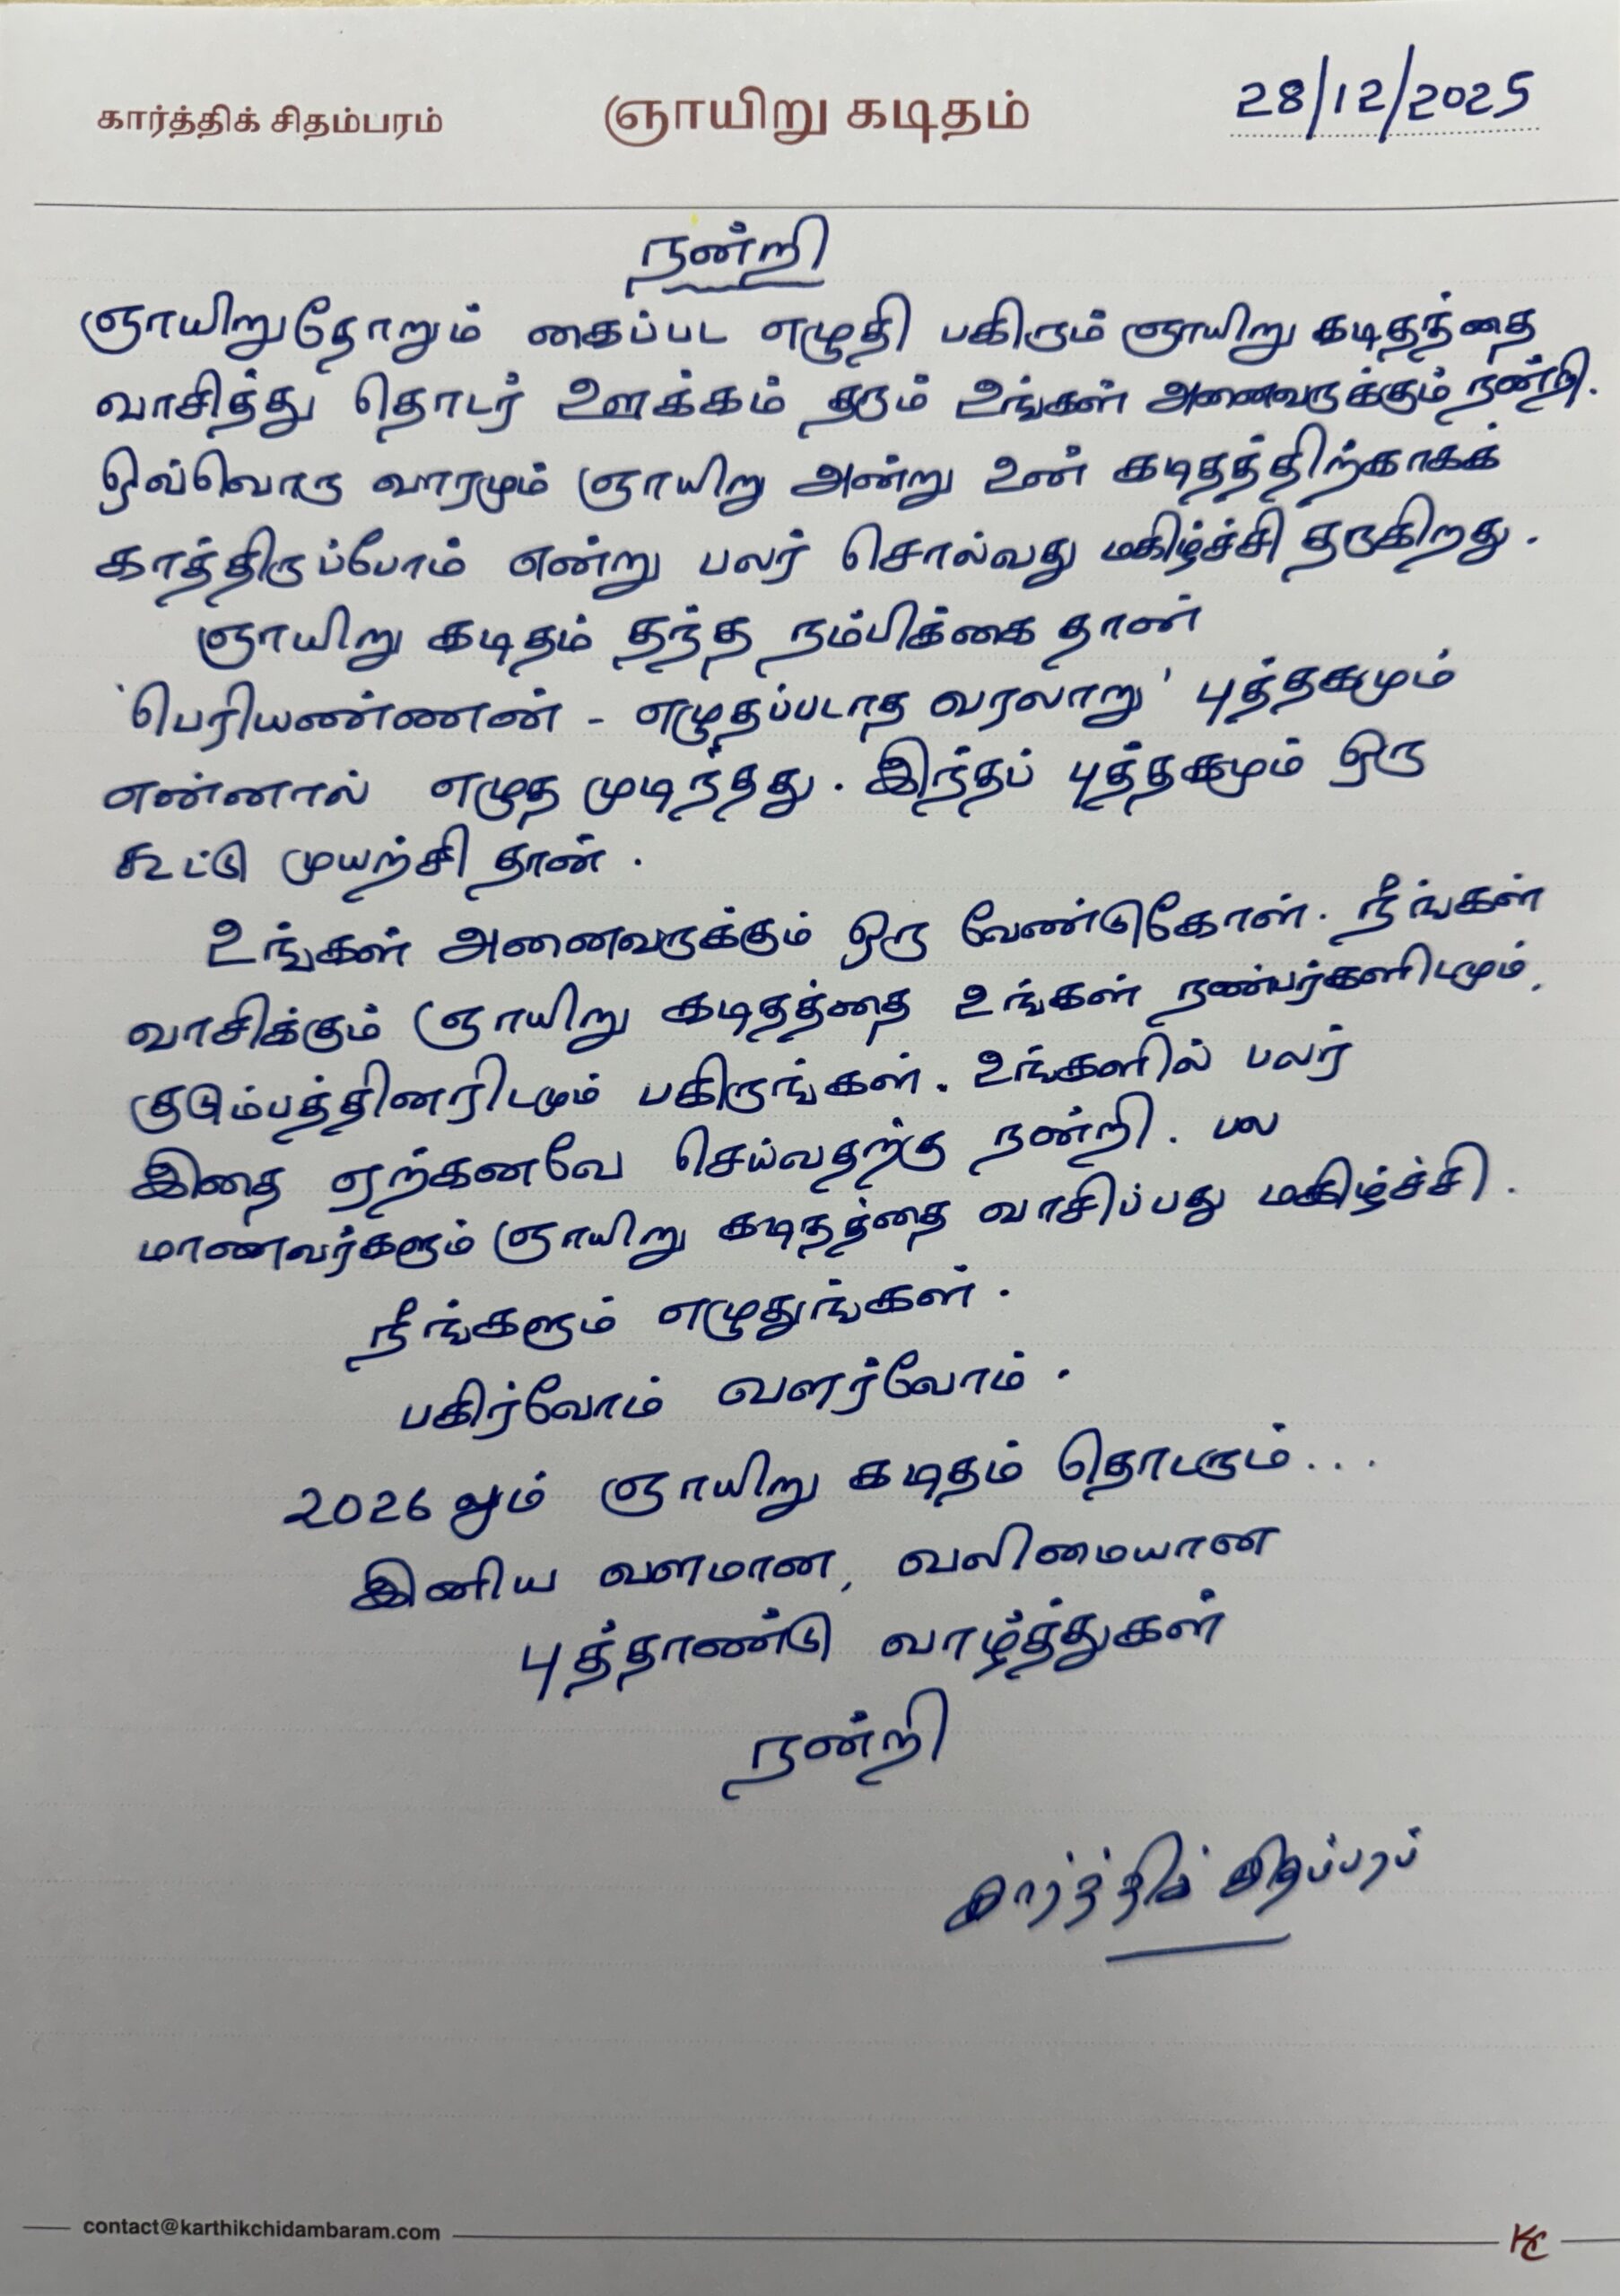 கார்த்திக் சிதம்பரம்
ஞாயிறு கடிதம்
28/12/2025
நன்றி
ஞாயிறுதோறும் கைப்பட எழுதி பகிரும் ஞாயிறு கடிதத்தை
வாசித்து தொடர் ஊக்கம் தரும் உங்கள் அனைவருக்கும் நன்றி.
ஒவ்வொரு வாரமும் ஞாயிறு அன்று உன் கடிதத்திற்காகக்
காத்திருப்போம் என்று பலர் சொல்வது மகிழ்ச்சி தருகிறது.
ஞாயிறு கடிதம் தந்த நம்பிக்கை தான்
'பெரியண்ணன் - எழுதப்படாத வரலாறு' புத்தகமும்
என்னால் எழுத முடிந்தது. இந்தப் புத்தகமும் ஒரு
கூட்டு முயற்சி தான்.
உங்கள் அனைவருக்கும் ஒரு வேண்டுகோள். நீங்கள்
வாசிக்கும் ஞாயிறு கடிதத்தை உங்கள் நண்பர்களிடமும்,
குடும்பத்தினரிடமும் பகிருங்கள். உங்களில் பலர்
இதை ஏற்கனவே செய்வதற்கு நன்றி. பல
மாணவர்களும் ஞாயிறு கடிதத்தை வாசிப்பது மகிழ்ச்சி.
நீங்களும் எழுதுங்கள்.
பகிர்வோம் வளர்வோம்.
2026 லும் ஞாயிறு கடிதம் தொடரும்...
இனிய வளமான, வலிமையான
புத்தாண்டு வாழ்த்துகள்
நன்றி
கார்த்திக் சிதம்பரம்
contact@karthikchidambaram.com
KC